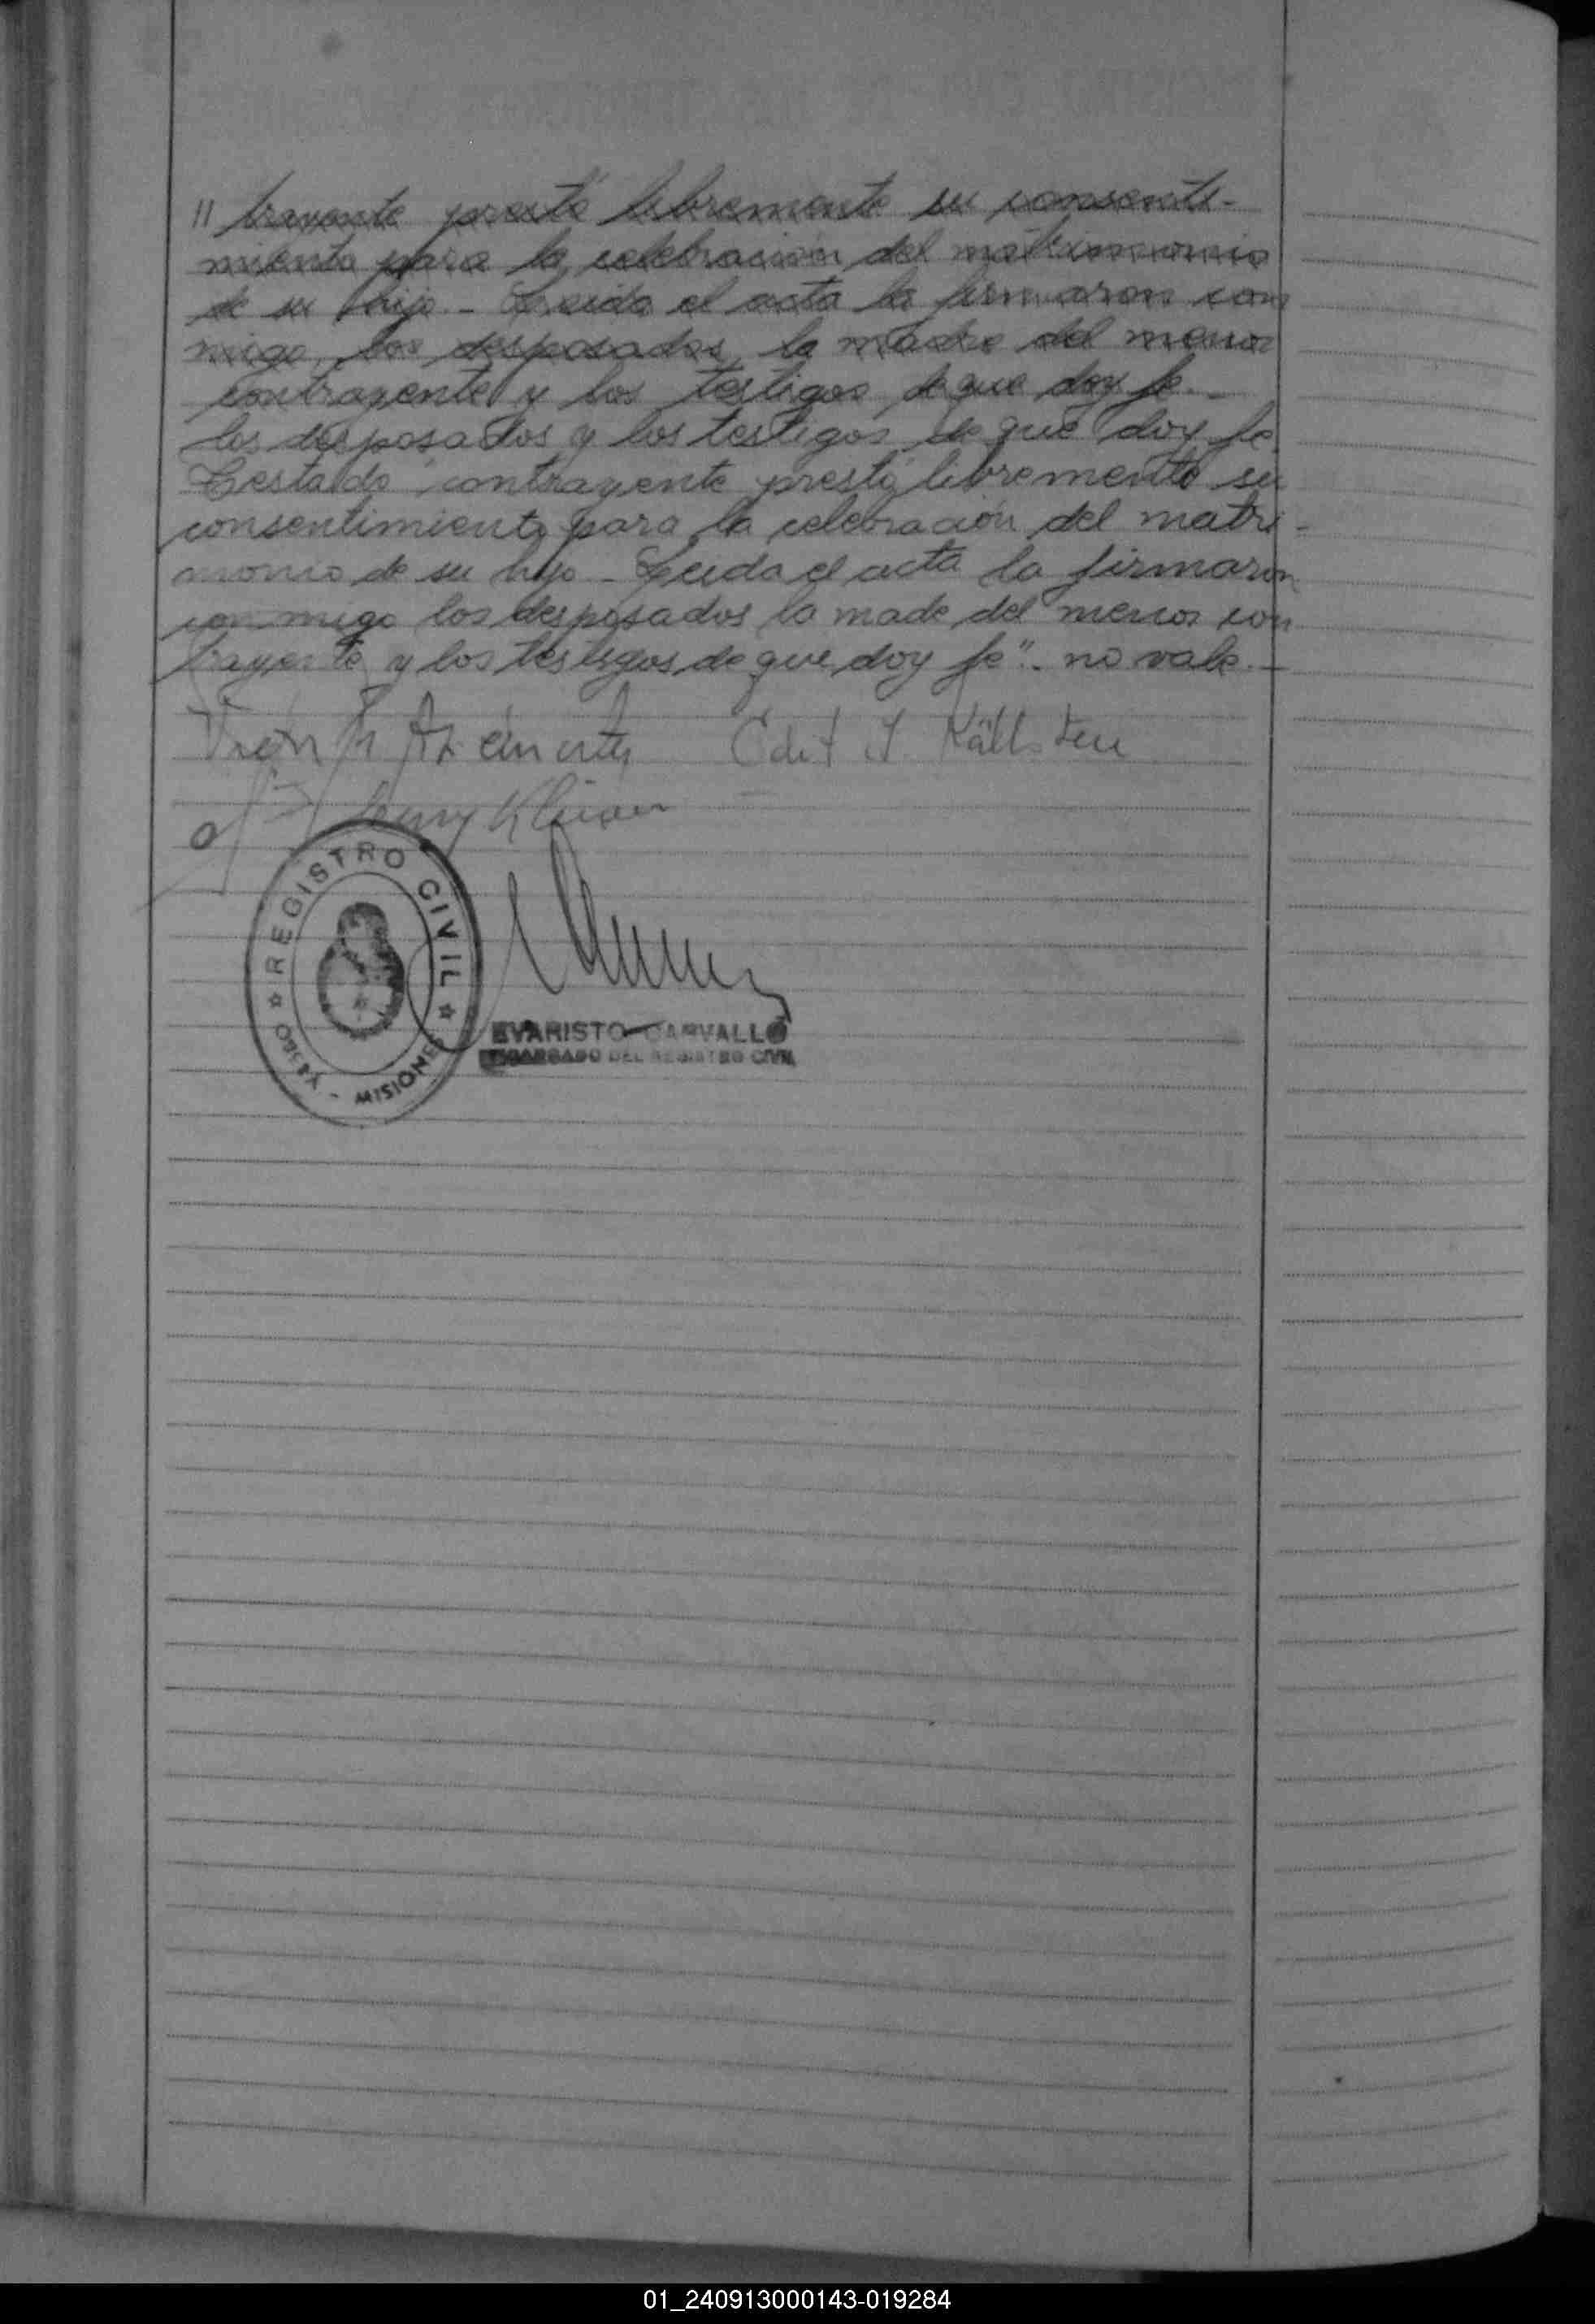 // trayente prestó libremente su consenti-
miento para la celebración del matrimonio
de su hijo.- Leida el acta la firmaron con
migo, los desposados, la madre del menor
contrayente y los testigos de que doy fe.-
los desposados y los testigos de que doy fe.
Testado "contrayente prestó libremente su
consentimiento para la celebración del matri-
monio de su hijo - Leida el acta la firmaron
con migo los desposados la made del menor con
trayente y los testigos de que doy fe".. no vale.-
Edit I. Källsten
REGISTRO CIVIL
MISIONES
EVARISTO CARVALLO
ENCARGADO DEL REGISTRO CIVIL
01_240913000143-019284